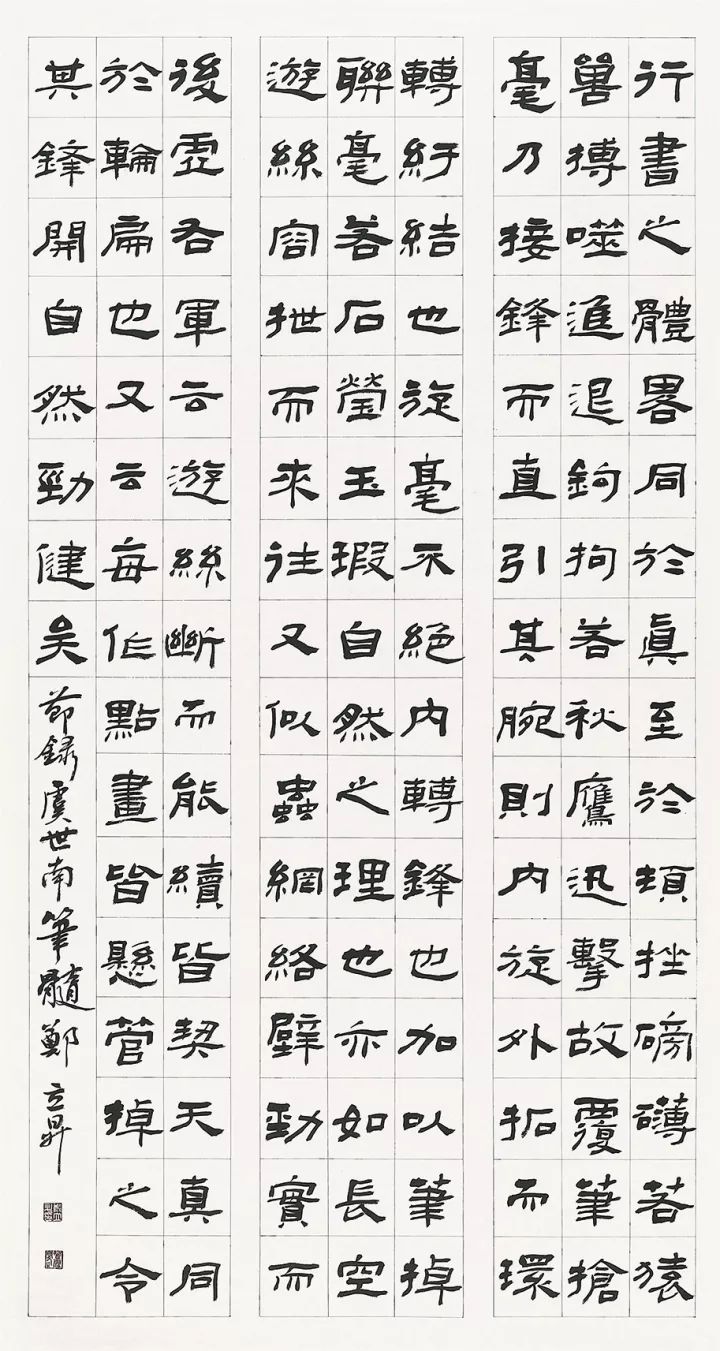 行書之體畧同於眞至於頓挫磅礴若猿
嘼搏噬進退鉤拘若秋鷹迅擊故覆筆搶
毫乃接鋒而直引其腕則内旋外拓而環
轉紆結也旋毫不絕内轉鋒也加以筆掉
聯毫若石瑩玉瑕自然之理也亦如長空
遊絲容拽而來往又似蟲網絡壁勁實而
後虛右軍云遊絲斷而能續皆契天真同
於輪扁也又云每作點畫皆懸管掉之令
其鋒開自然勁健矣節錄虞世南筆髓鄭立昇